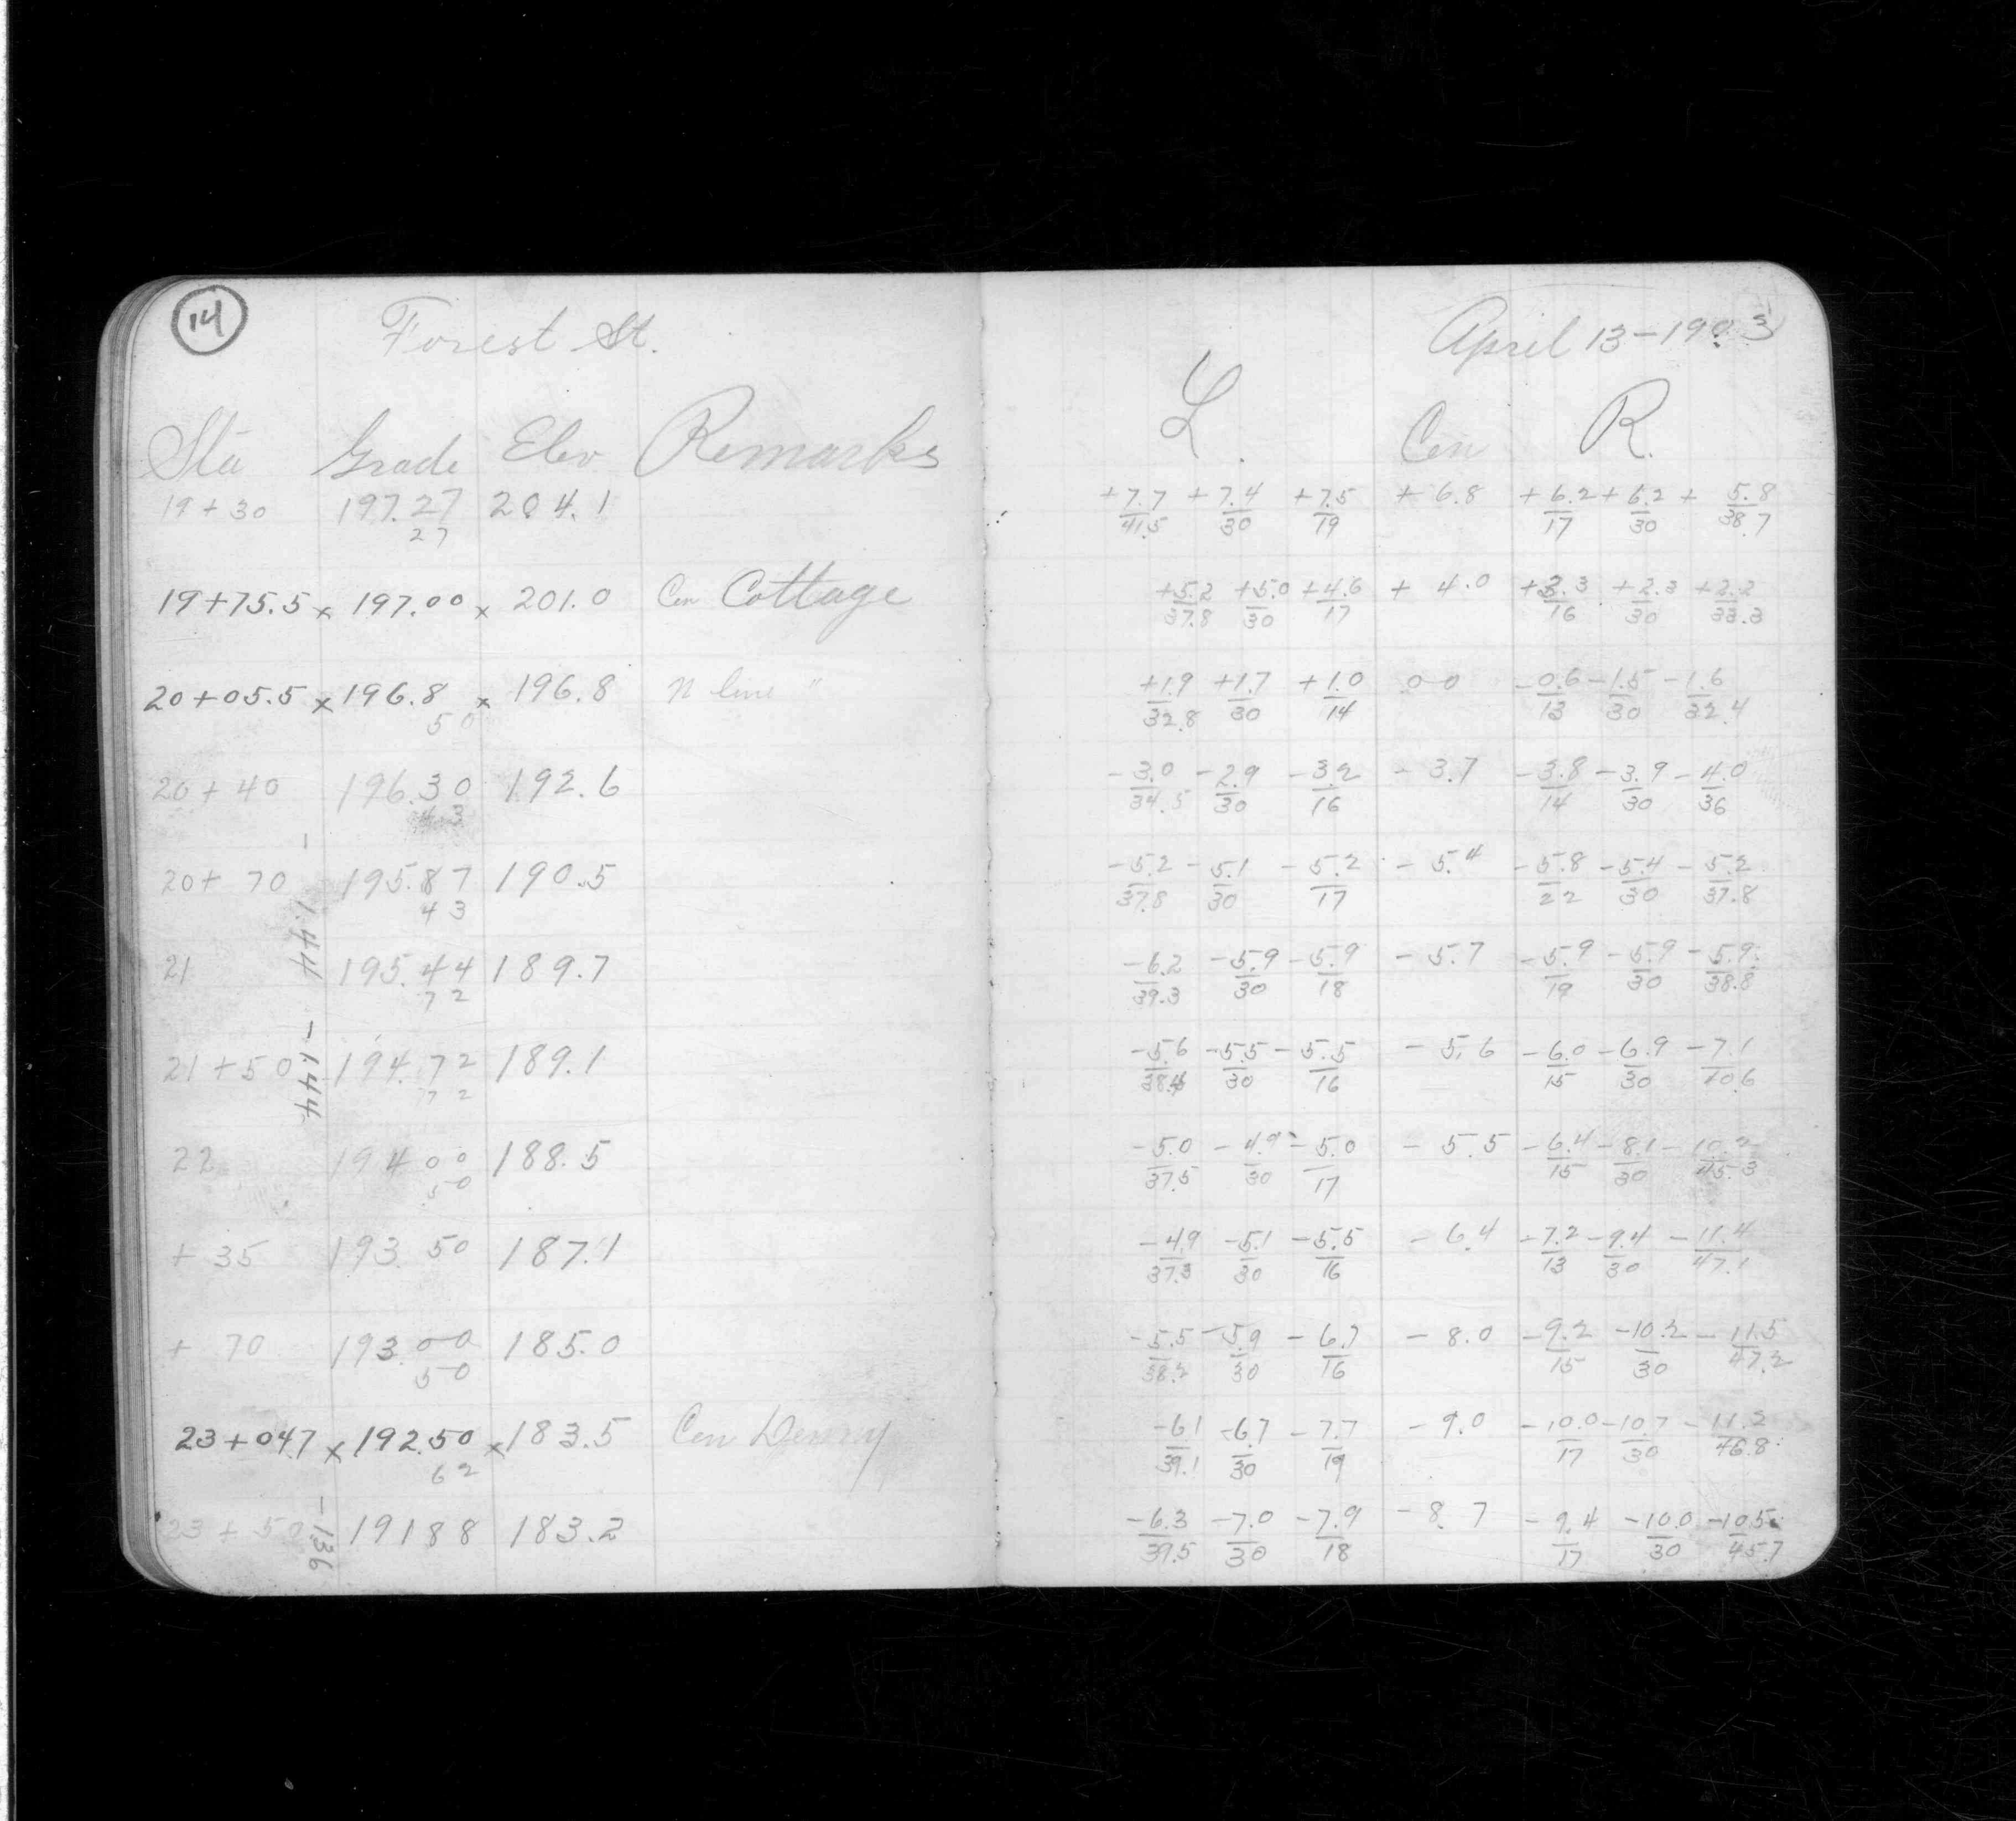 14
Forest St.
April 13-1903
Sta Grade Elev Remarks L. Cen R.
19+30 197.27 204.1 +7.7/41.5 +7.4/30 +7.5/19 +6.8 +6.2/17 +6.2/30 +5.8/38.7
27
19+75.5 x 197.00 x 201.0 Cen Cottage +5.2/37.8 +5.0/30 +4.6/17 +4.0 +3.3/16 +2.3/30 +2.2/33.3
20+05.5 x 196.8 x 196.8 N line " +1.9/32.8 +1.7/30 +1.0/14 00 -0.6/13 -1.5/30 -1.6/32.4
50
20+40 196.30 192.6 -3.0/34.5 -2.9/30 -3.2/16 -3.7 -3.8/14 -3.9/30 -4.0/36
43
20+70 195.87 190.5 -5.2/37.8 -5.1/30 -5.2/17 -5.4 -5.8/22 -5.4/30 -5.2/37.8
43
-1.44
21 195.44 189.7 -6.2/39.3 -5.9/30 -5.9/18 -5.7 -5.9/19 -5.9/30 -5.9/38.8
72
21+50 194.72 189.1 -5.6/38.4 -5.5/30 -5.5/16 -5.6 -6.0/15 -6.9/30 -7.1/40.6
72
-1.44
22 194 00 188.5 -5.0/37.5 -4.9/30 -5.0/17 -5.5 -6.4/15 -8.1/30 -10.2/45.3
50
+35 193.50 187.1 -4.9/37.3 -5.1/30 -5.5/16 -6.4 -7.2/13 -9.4/30 -11.4/47.1
+70 193.00 185.0 -5.5/38.2 -5.9/30 -6.7/16 -8.0 -9.2/15 -10.2/30 -11.5/47.2
50
23+047 x 192.50 x 183.5 Cen Henry -6.1/39.1 -6.7/30 -7.7/19 -9.0 -10.0/17 -10.7/30 -11.2/46.8
62
23+50 19188 183.2 -6.3/39.5 -7.0/30 -7.9/18 -8.7 -9.4/17 -10.0/30 -10.5/45.7
-1.36